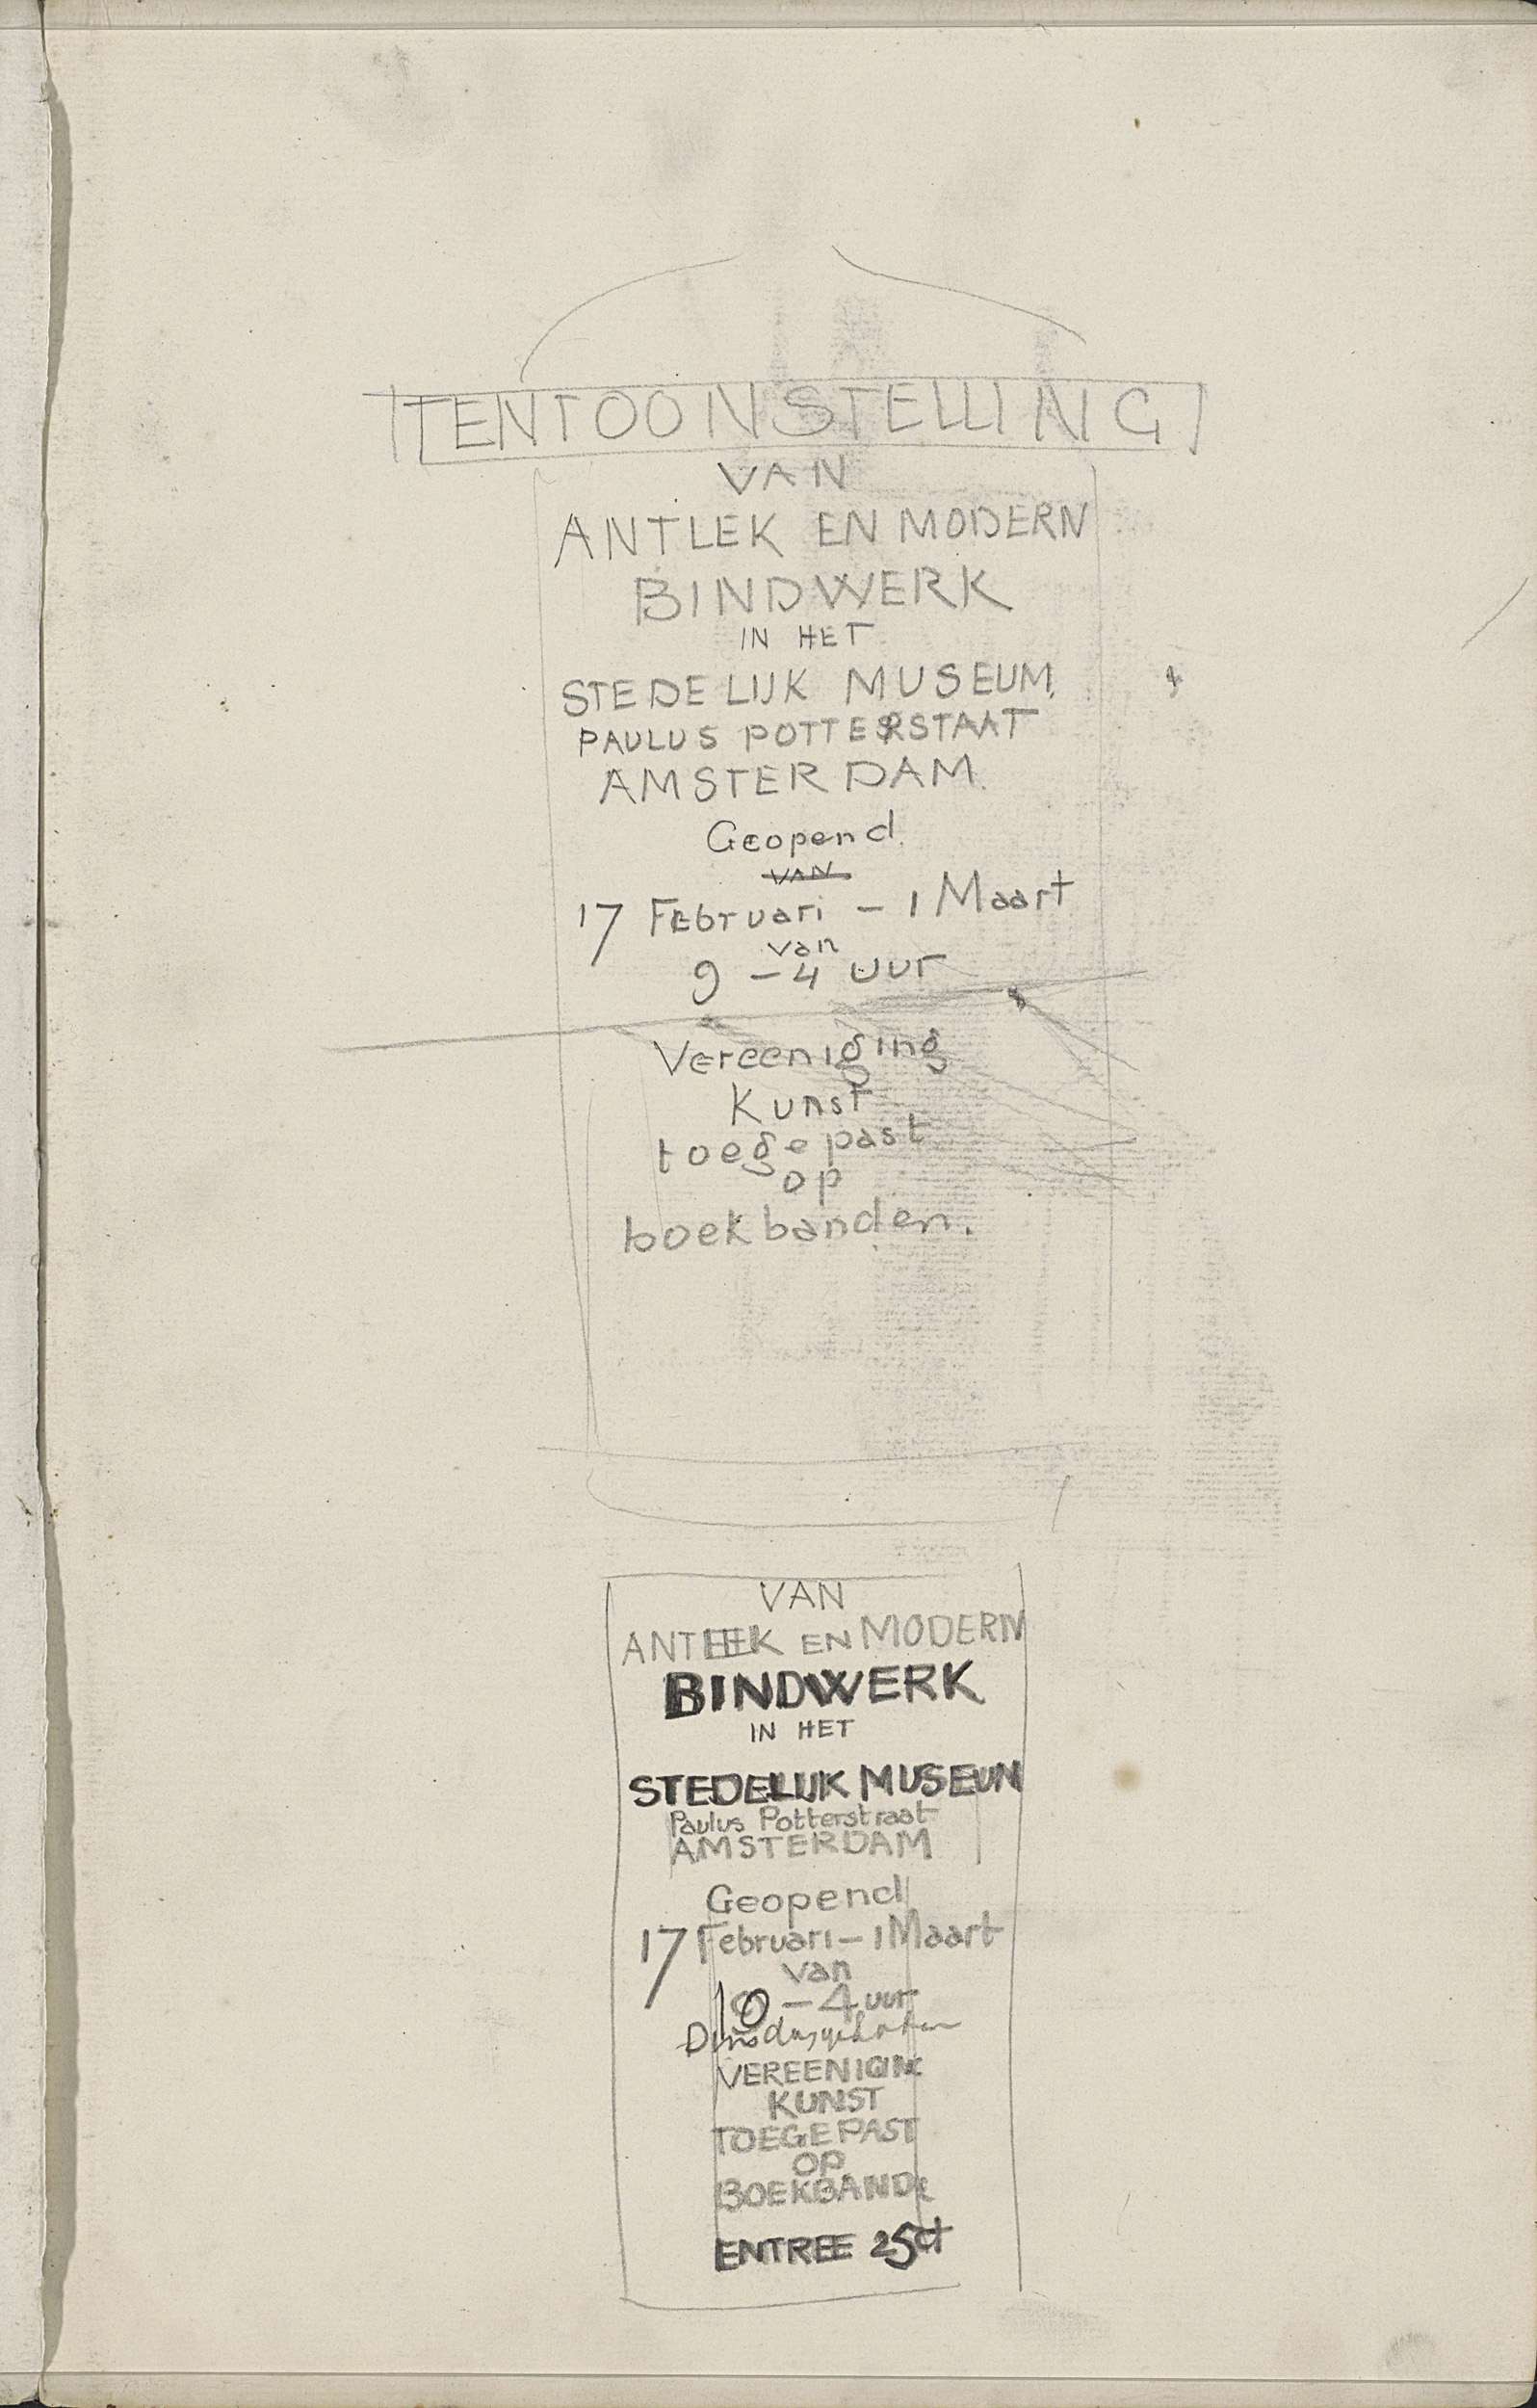 TENTOONSTELLING
VAN
ANTIEK EN MODERN
BINDWERK
IN HET
STEDELIJK MUSEUM.
PAULUS POTTERSTAAT
AMSTERDAM.
Geopend.
VAN
17 Februari – 1 Maart
van
9 – 4 uur
Vereeniging
Kunst
toegepast
op
boekbanden.
VAN
ANTIEK EN MODERN
BINDWERK
IN HET
STEDELIJK MUSEUM
Paulus Potterstraat
AMSTERDAM
Geopend
17 Februari – 1 Maart
van
10 – 4 uur
VEREENIGING
KUNST
TOEGEPAST
OP
BOEKBANDE
ENTREE 25ct